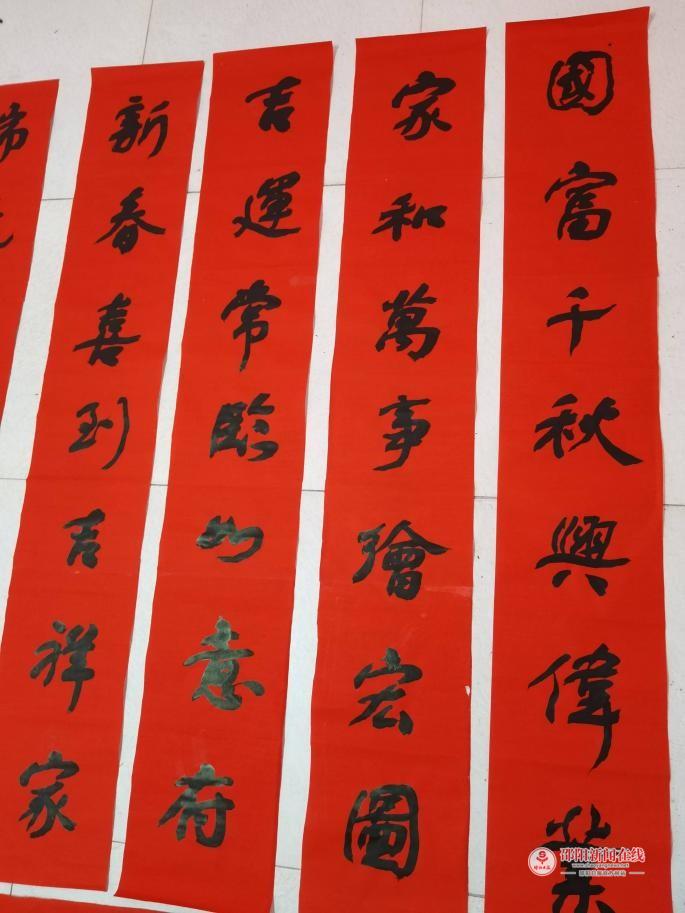 國富千秋興偉業
家和萬事繪宏圖
吉運常臨如意府
新春喜到吉祥家
邵阳新闻在线
www.shaoyangnews.net